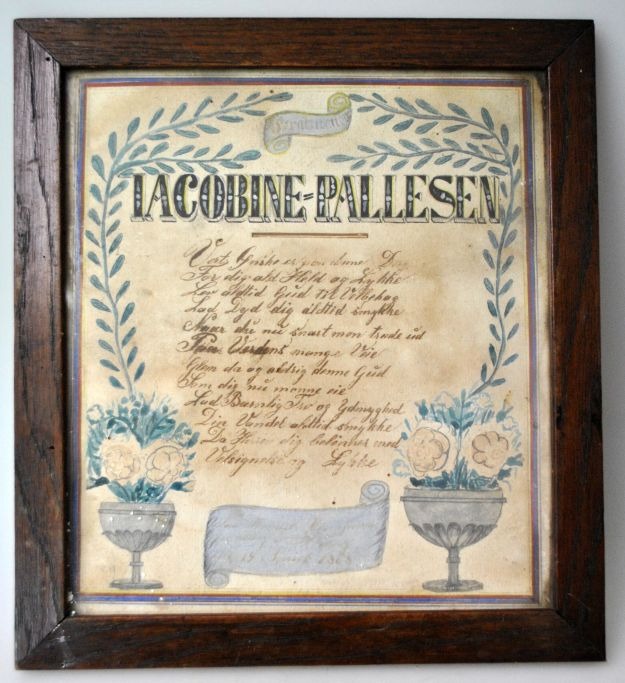 IACOBINE=PALLESEN
Vort Ønske er paa denne Dag
For dig ald Held og Lykke
Lev altid Gud til Velbehag
Lad Dyd dig altid smykke
Naar du nu snart mon træde ud
Paa Verdens mange Veie
Glem da og aldrig denne Gud
Som dig nu monne eie
Lad Barnlig Tro og Ydmyghed
Din Vandel altid smykke
Da Herren dig belønner med
Velsignelse og Lykke